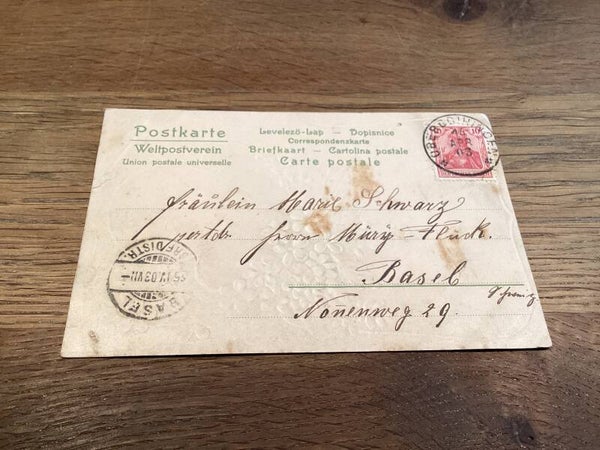 Postkarte
Weltpostverein
Union postale universelle
Levelező-Lap — Dopisnice
Correspondenzkarte
Briefkaart - Cartolina postale
Carte postale
15
APR
03
Fräulein Marie Schwarz
Herrn Müry-Flück.
Basel
Nonnenweg 29.
BRF.DISTR.
15.IV.03.VII
BASEL